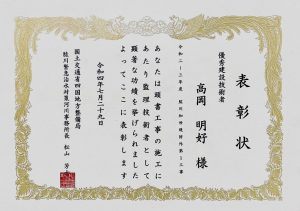 表彰状
優秀建設技術者
高岡 明好 様
あなたは頭書工事の施工に
あたり監理技術者として
顕著な功績を挙げられました
よってここに表彰します
令和四年七月二十九日
国土交通省四国地方整備局
肱川緊急治水対策河川事務所長 松山 芳